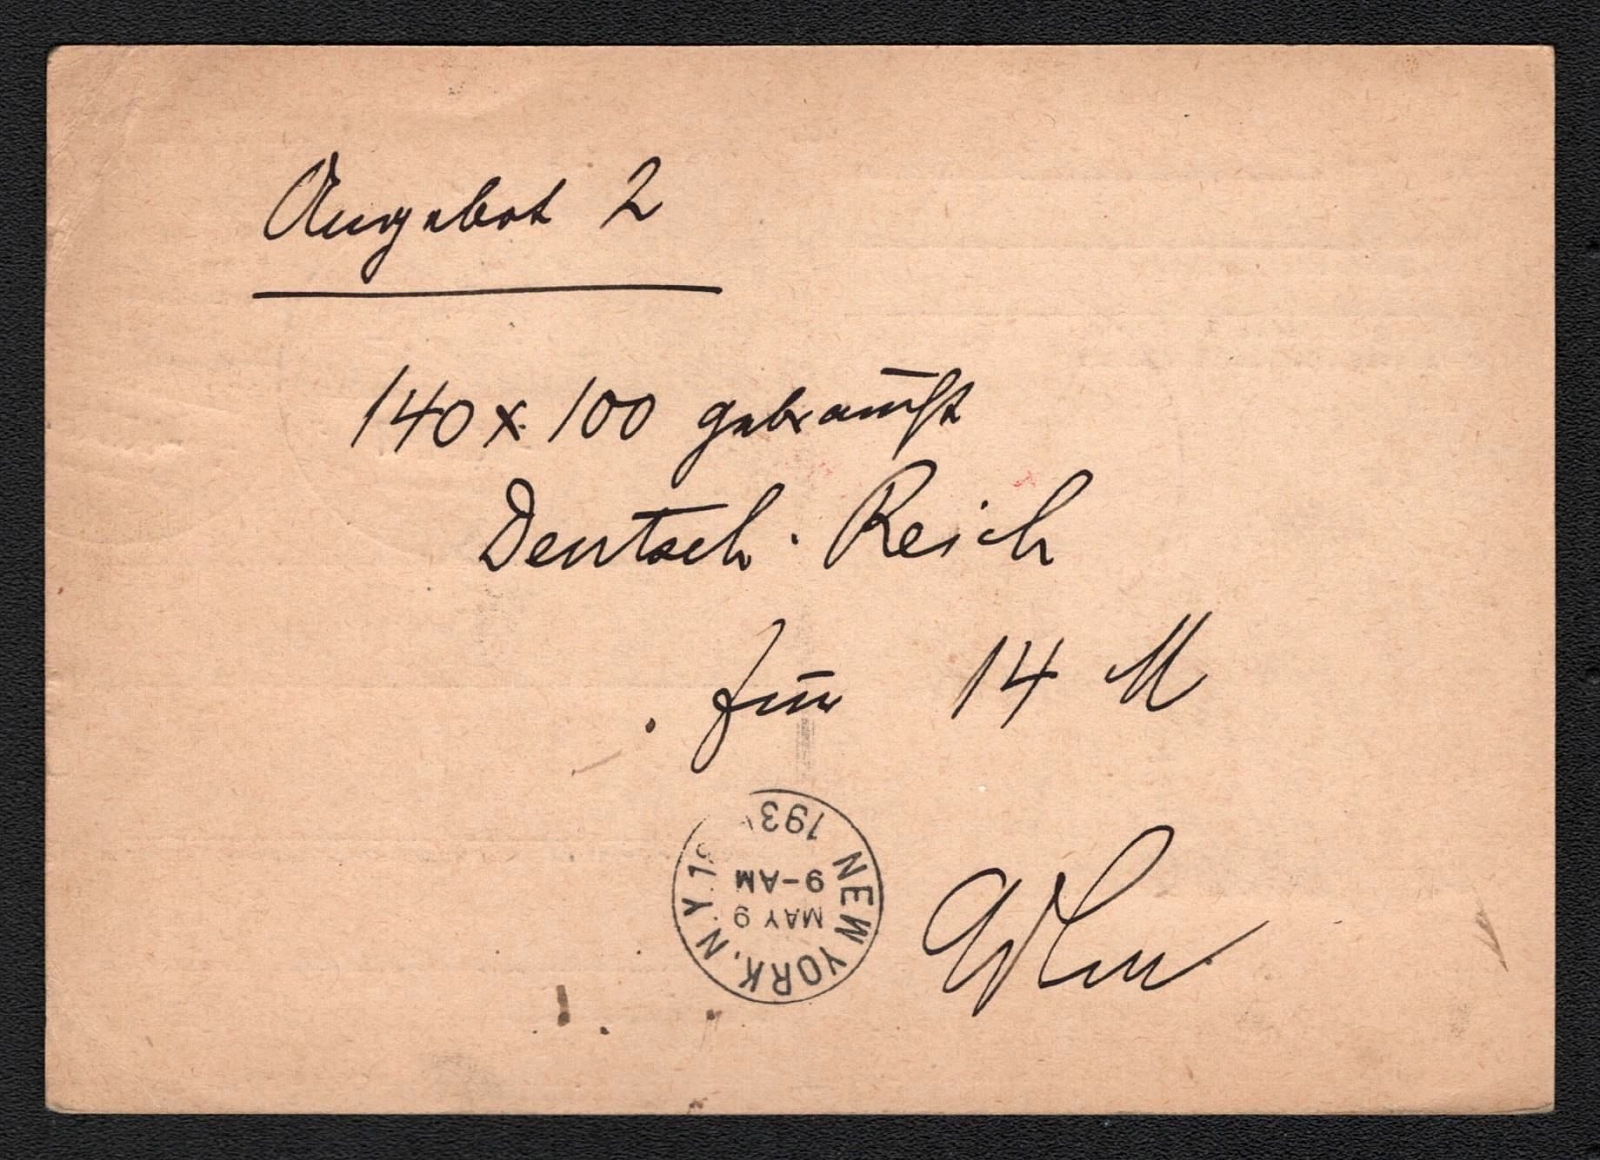 Angebot 2
140 x 100 gebraucht
Deutsch. Reich
für 14 M
NEW YORK, N.Y.
MAY 9
9-AM
193